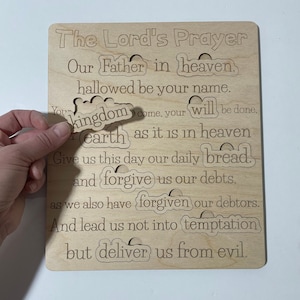 The Lord's Prayer
Our Father in heaven,
hallowed be your name.
Your kingdom come, your will be done,
earth as it is in heaven
Give us this day our daily bread.
and forgive us our debts.
as we also have forgiven our debtors.
And lead us not into temptation
but deliver us from evil.